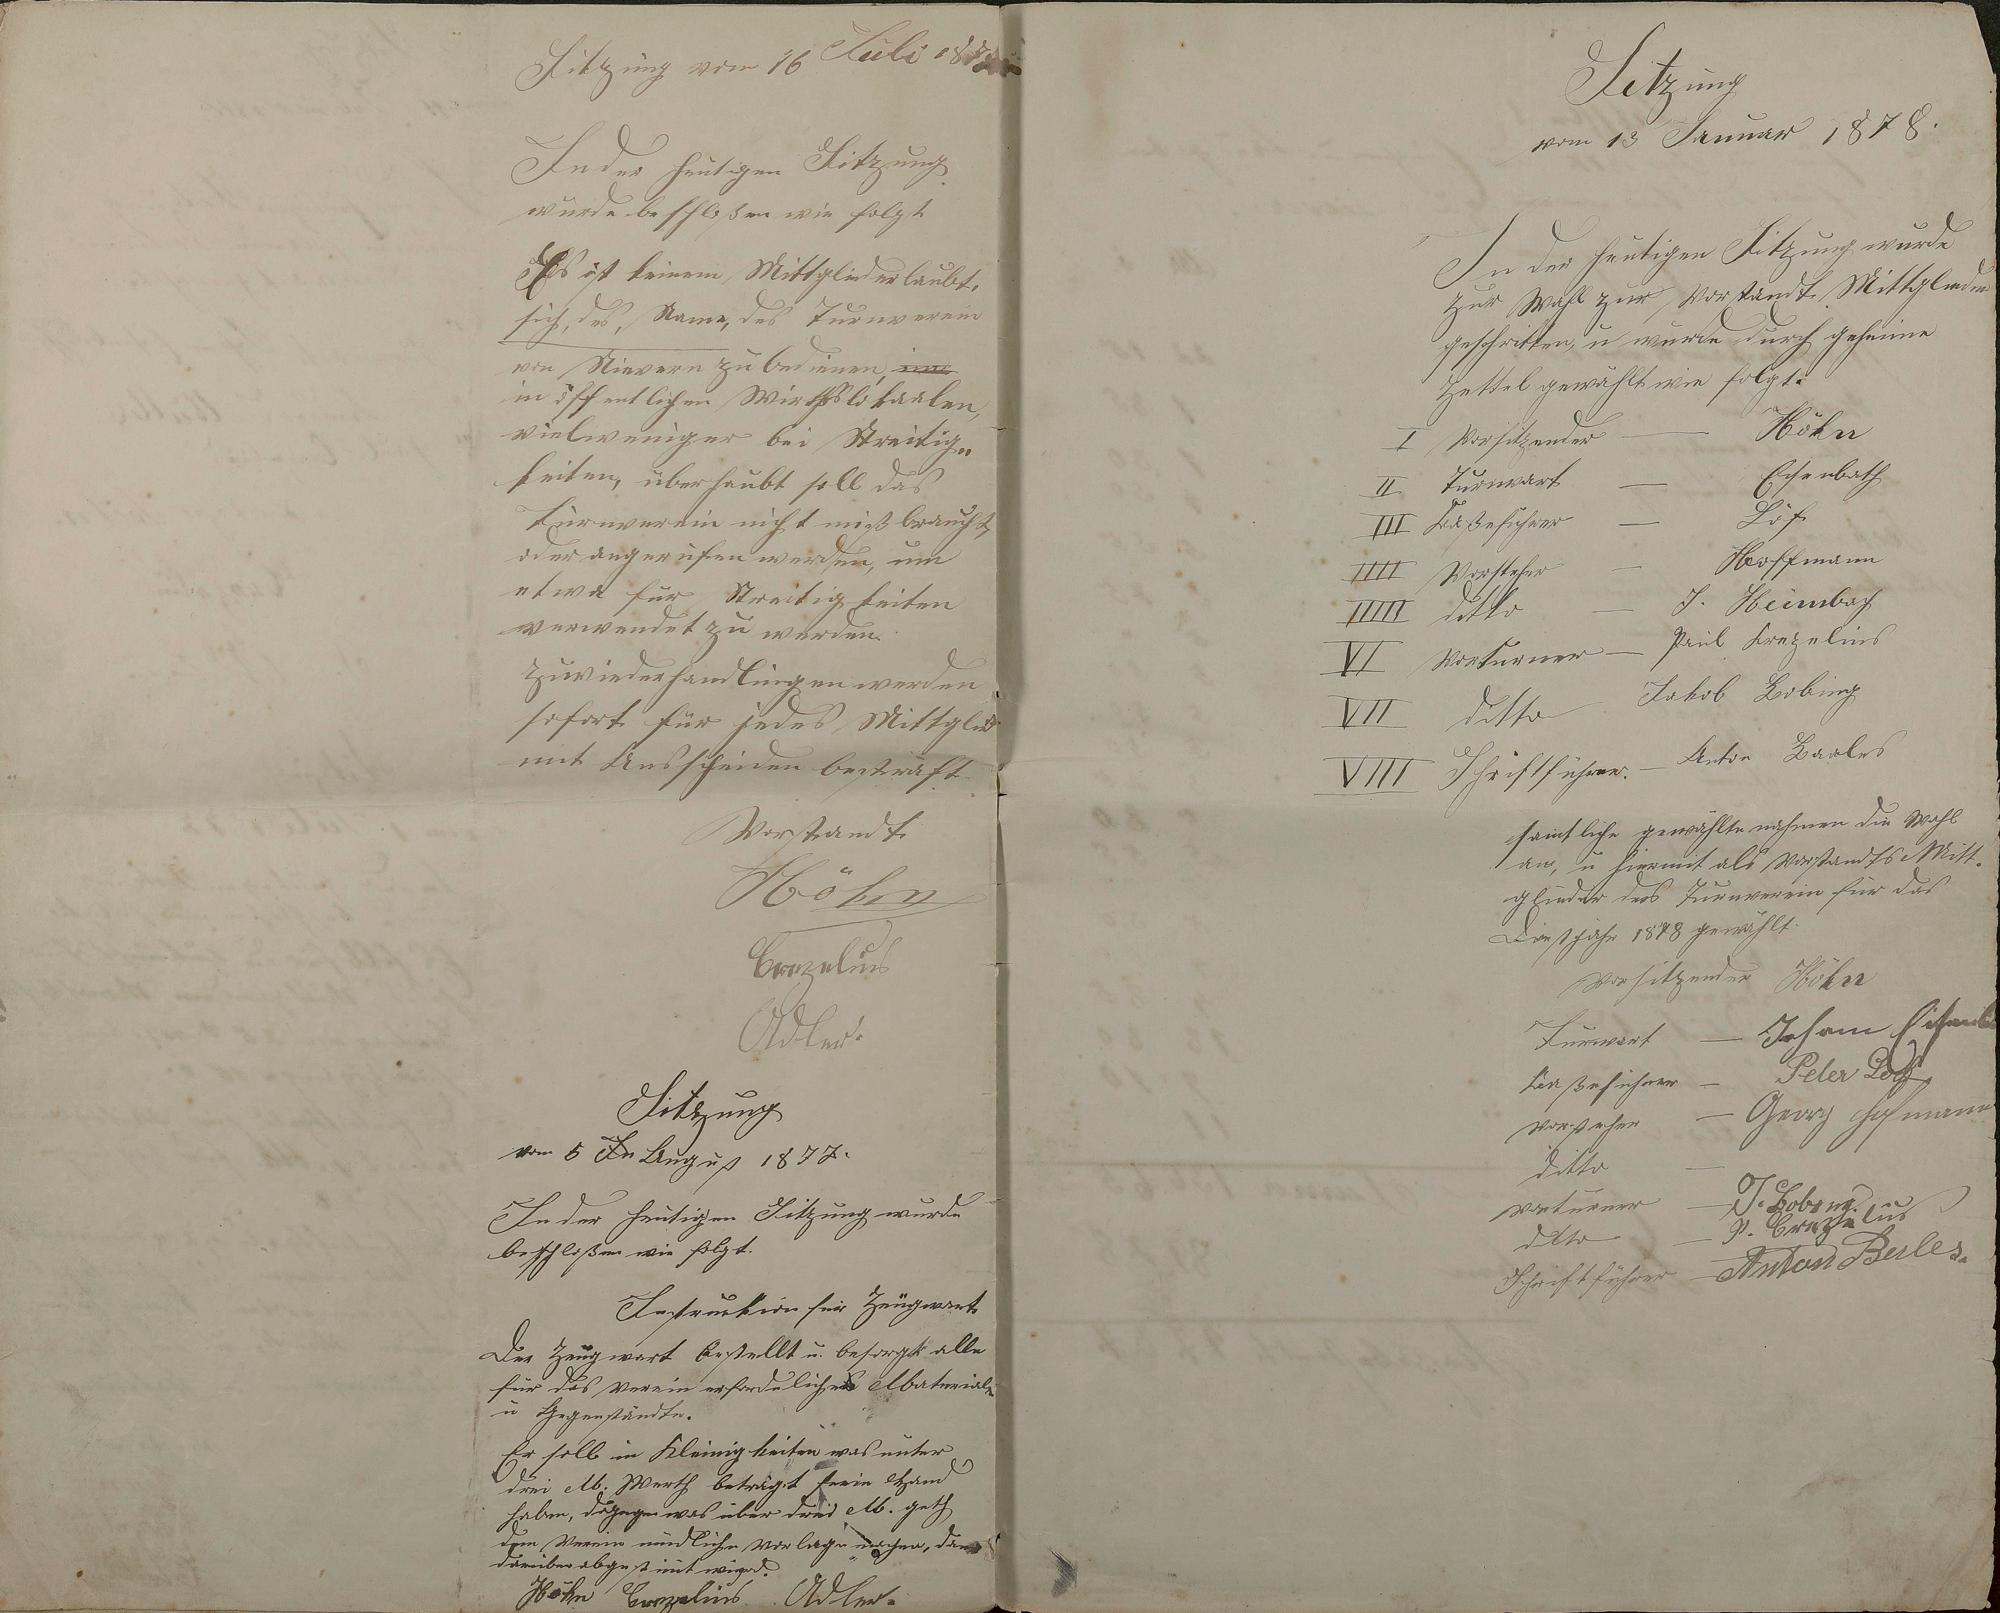 Sitzung vom 16 Juli
In der heutigen Sitzung
wurde beschloßen wie folgt
Es ist keinem Mittglied erlaubt,
sich, des, Name, des Turnverein
von Nievern zu bedienen,
in öffentlichen Wirthslokaalen,
vielweniger bei Streitig„
keiten, überhaubt soll das
Turnverein nicht mißbraucht,
oder angerufen werden, um
etwa für Streitigkeiten
verwendet zu werden.
Zuwiederhandlungen werden
sofort für jedes Mittglied
mit Ausscheiden bestraft.
Vorstandt.
Höhn
Crezelius
Adler.
Sitzung
vom 5 August 1877.
In der heutigen Sitzung wurde
beschloßen wie folgt.
Instruktion für Zeugwart
Der Zeugwart bestellt u. besorgt alle
für das Verein erforderliches Material
u Gegenständte.
Er soll in Kleinigkeiten was unter
drei M. Werth beträgt freie Hand
haben, dagegen was über drei M. geth
dem Verein mündliche Vorlage machen, dan
darüber abgestimt wird.
Höhn Crezelius Adler.
Sitzung
vom 13 Januar 1878.
In der heutigen Sitzung wurde
zur Wahl zur Vorstandt. Mittglieder
geschritten, u wurde durch geheime
Zettel gewählt wie folgt.
I Vorsitzender — Höhn
II Turnwart — Eisenbath
III Kaßeführer — Löf
IIII Vorsteher — Hoffmann
IIIII ditto — J. Heimbach
VI Vorturner — Paul Krezelius
VII ditto Jakob Lobing
VIII Schriftführer. — Anton Baales
samtliche gewählte nahmen die Wahl
an, u hiermit als Vorstandts Mitt-
glieder des Turnverein für das
Dinstjahr 1878 gewählt.
Vorsitzender Höhn
Turnwart — Johann
Kaßeführer — Peter Löf
Vorsteher — Georg Hofmann
ditto —
Vorturner — J. Lobing. u
ditto — P. Crezelius
Schriftführer — Anton Beiles.